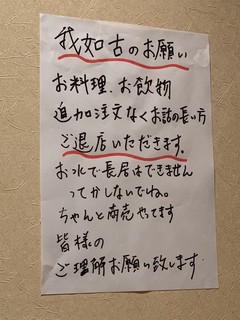 我如古のお願い
お料理、お飲物
追加注文なくお話の長い方
ご退店いただきます。
お水で長居はできません
ってかしないでね。
ちゃんと商売やってます
皆様の
ご理解お願い致します